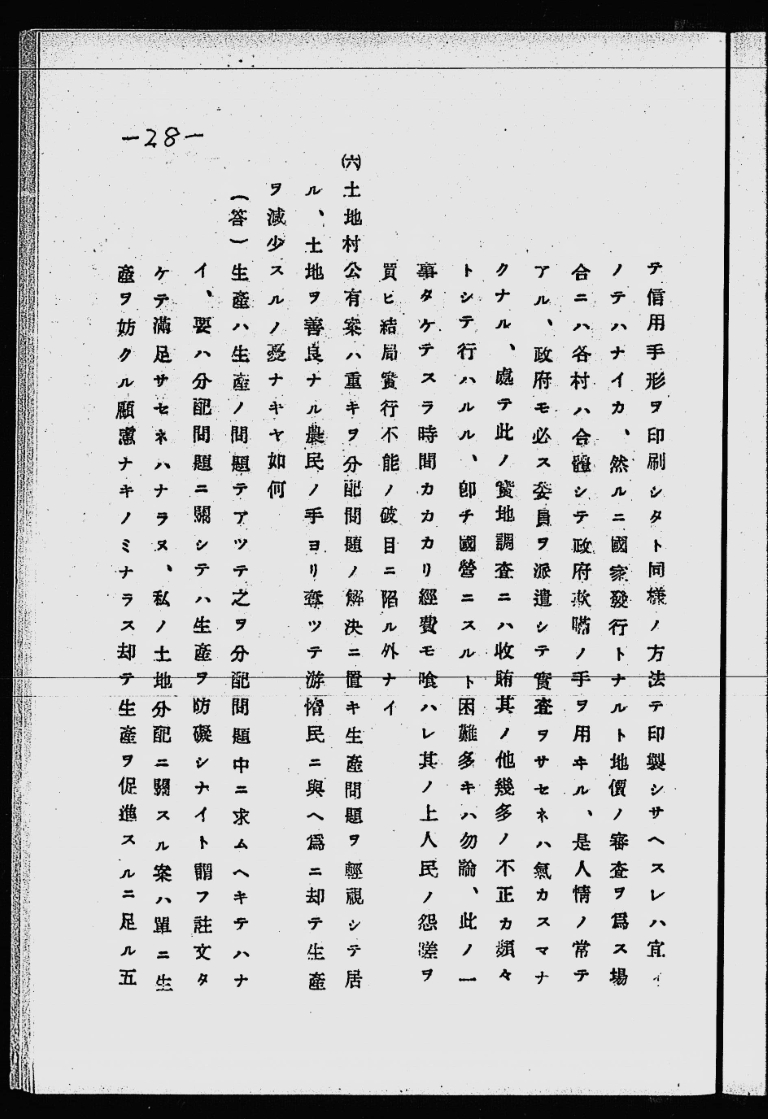 テ信用手形ヲ印刷シタト同樣ノ方法テ印製シサヘスレハ宜イ
ノテハナイカ、然ルニ國家發行トナルト地價ノ審査ヲ爲ス場
合ニハ各村ハ合體シテ政府欺瞞ノ手ヲ用ヰル、是人情ノ常テ
アル、政府モ必ス委員ヲ派遣シテ實査ヲサセネハ氣カスマナ
クナル、處テ此ノ實地調査ニハ收賄其ノ他幾多ノ不正カ頻々
トシテ行ハルル、卽チ國營ニスルト困難多キハ勿論、此ノ一
事タケテスラ時間カカカリ經費モ喰ハレ其ノ上人民ノ怨嗟ヲ
買ヒ結局實行不能ノ破目ニ陷ル外ナイ
㈥土地村公有案ハ重キヲ分配問題ノ解決ニ置キ生產問題ヲ輕視シテ居
ル、土地ヲ善良ナル農民ノ手ヨリ奪ツテ游惰民ニ與ヘ爲ニ却テ生產
ヲ減少スルノ憂ナキヤ如何
(答)生產ハ生產ノ問題テアツテ之ヲ分配問題中ニ求ムヘキテハナ
イ、要ハ分配問題ニ關シテハ生產ヲ防礙シナイト謂フ註文タ
ケテ滿足サセネハナラヌ、私ノ土地分配ニ關スル案ハ單ニ生
產ヲ妨クル顧慮ナキノミナラス却テ生產ヲ促進スルニ足ル五
-28-